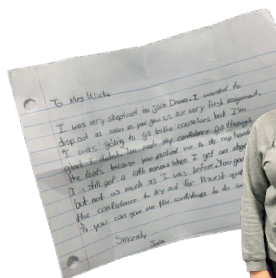 To Mrs Wicks
I was very skeptical to join Drama. I wanted to
drop out as soon as you gave us our very first assignment.
I was going to go to the counselors but I'm
glad I didn't. You made my confidence go through
the roof because you pushed me to do my
I still get a little nervous when I get on stage
but not as much as I was before. You gave
the confidence to try out for
you can give me the confidence to do
Sincerely